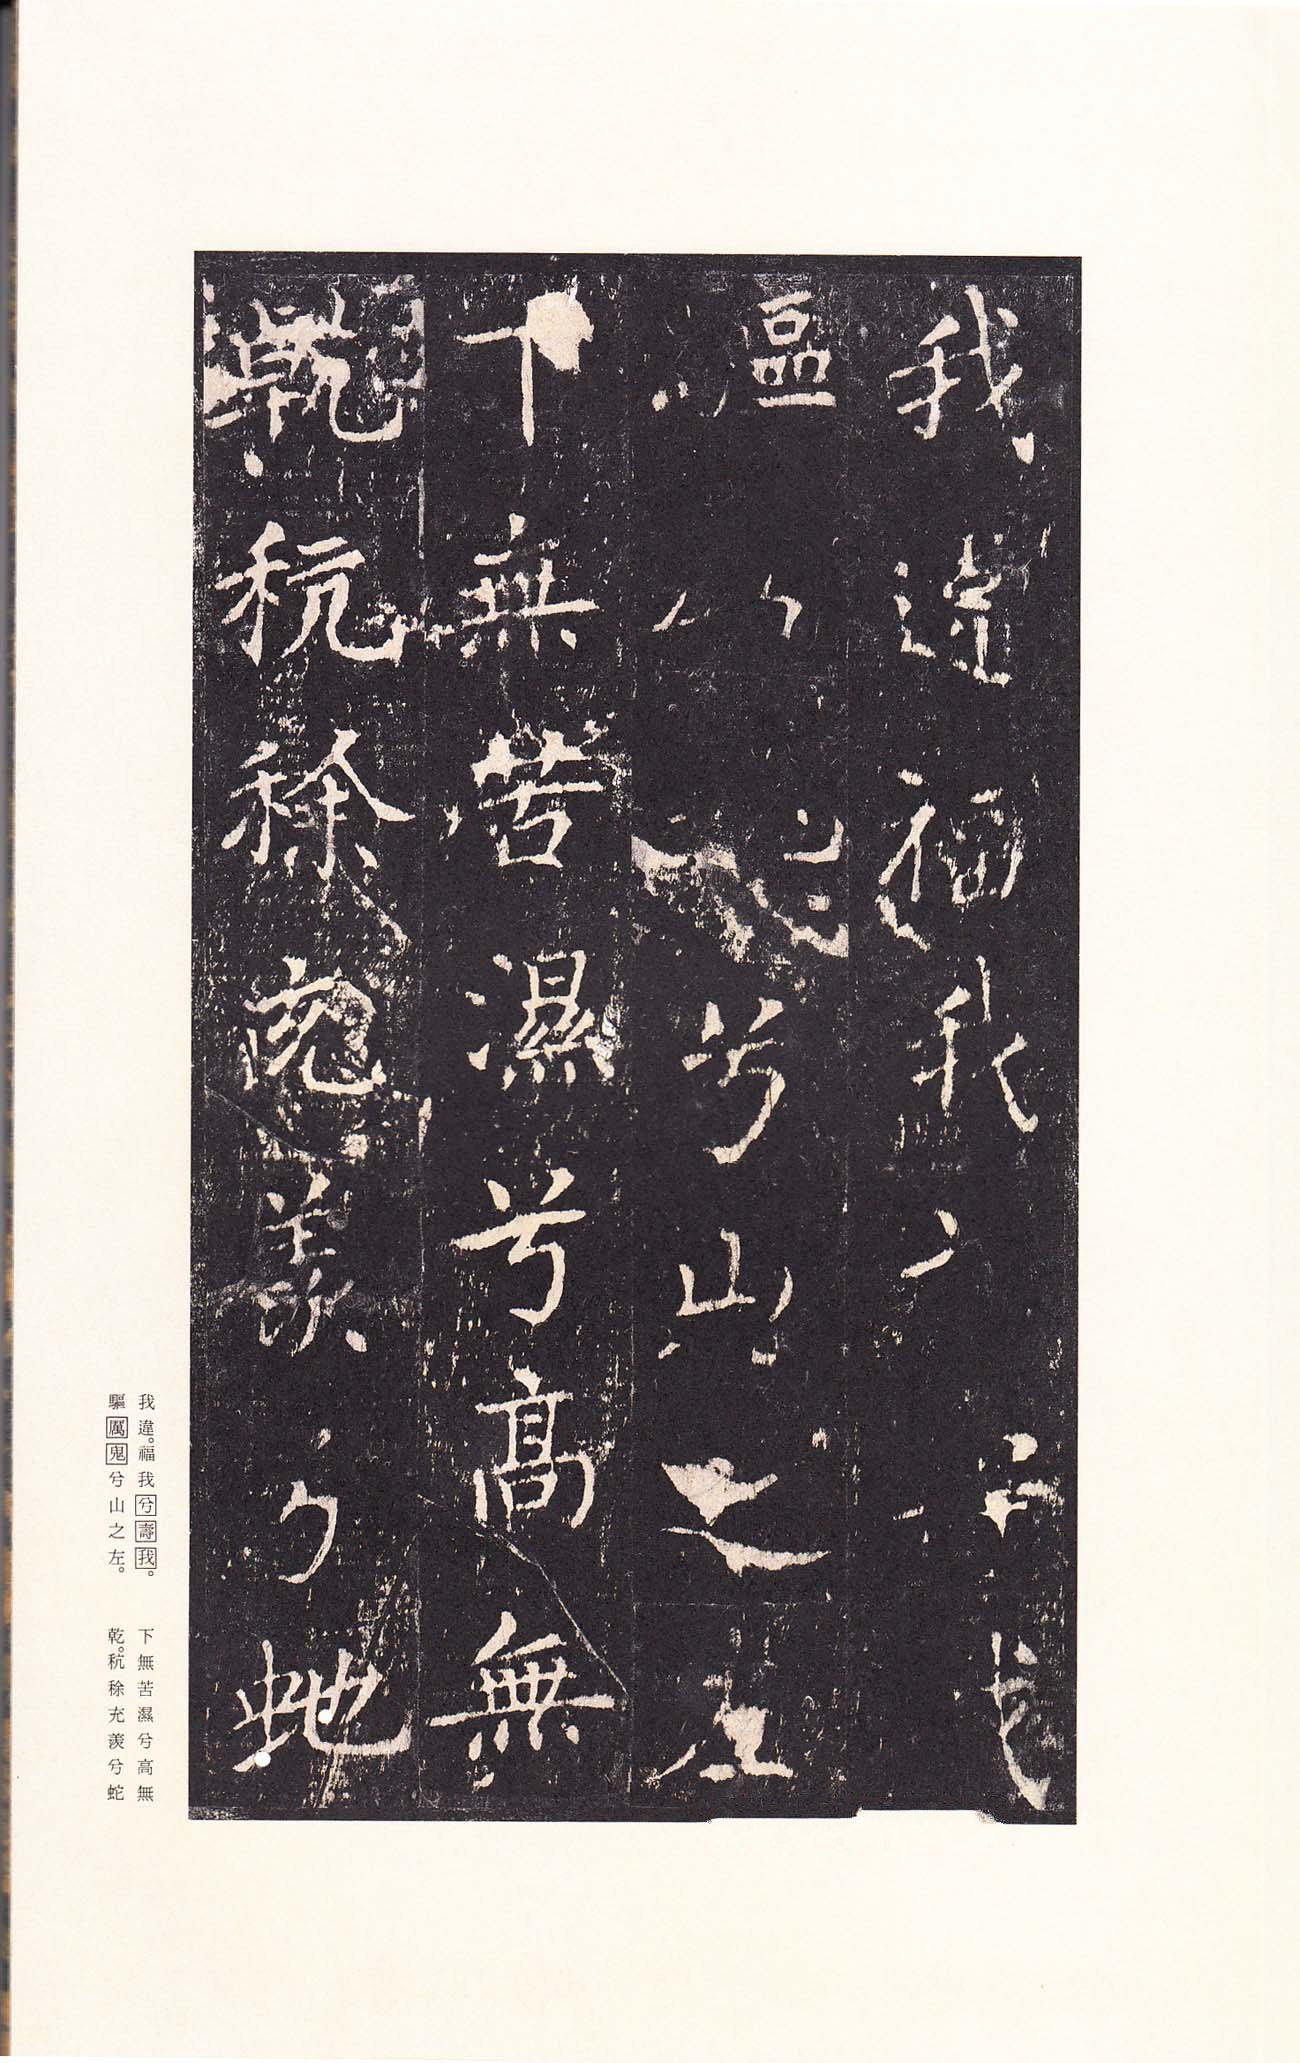 我違福我兮壽我
驅厲鬼兮山之左
下無苦濕兮高無
乾秔稌充羨兮蛇
我違。福我兮壽我。
驅厲鬼兮山之左。
下無苦濕兮高無
乾。秔稌充羨兮蛇